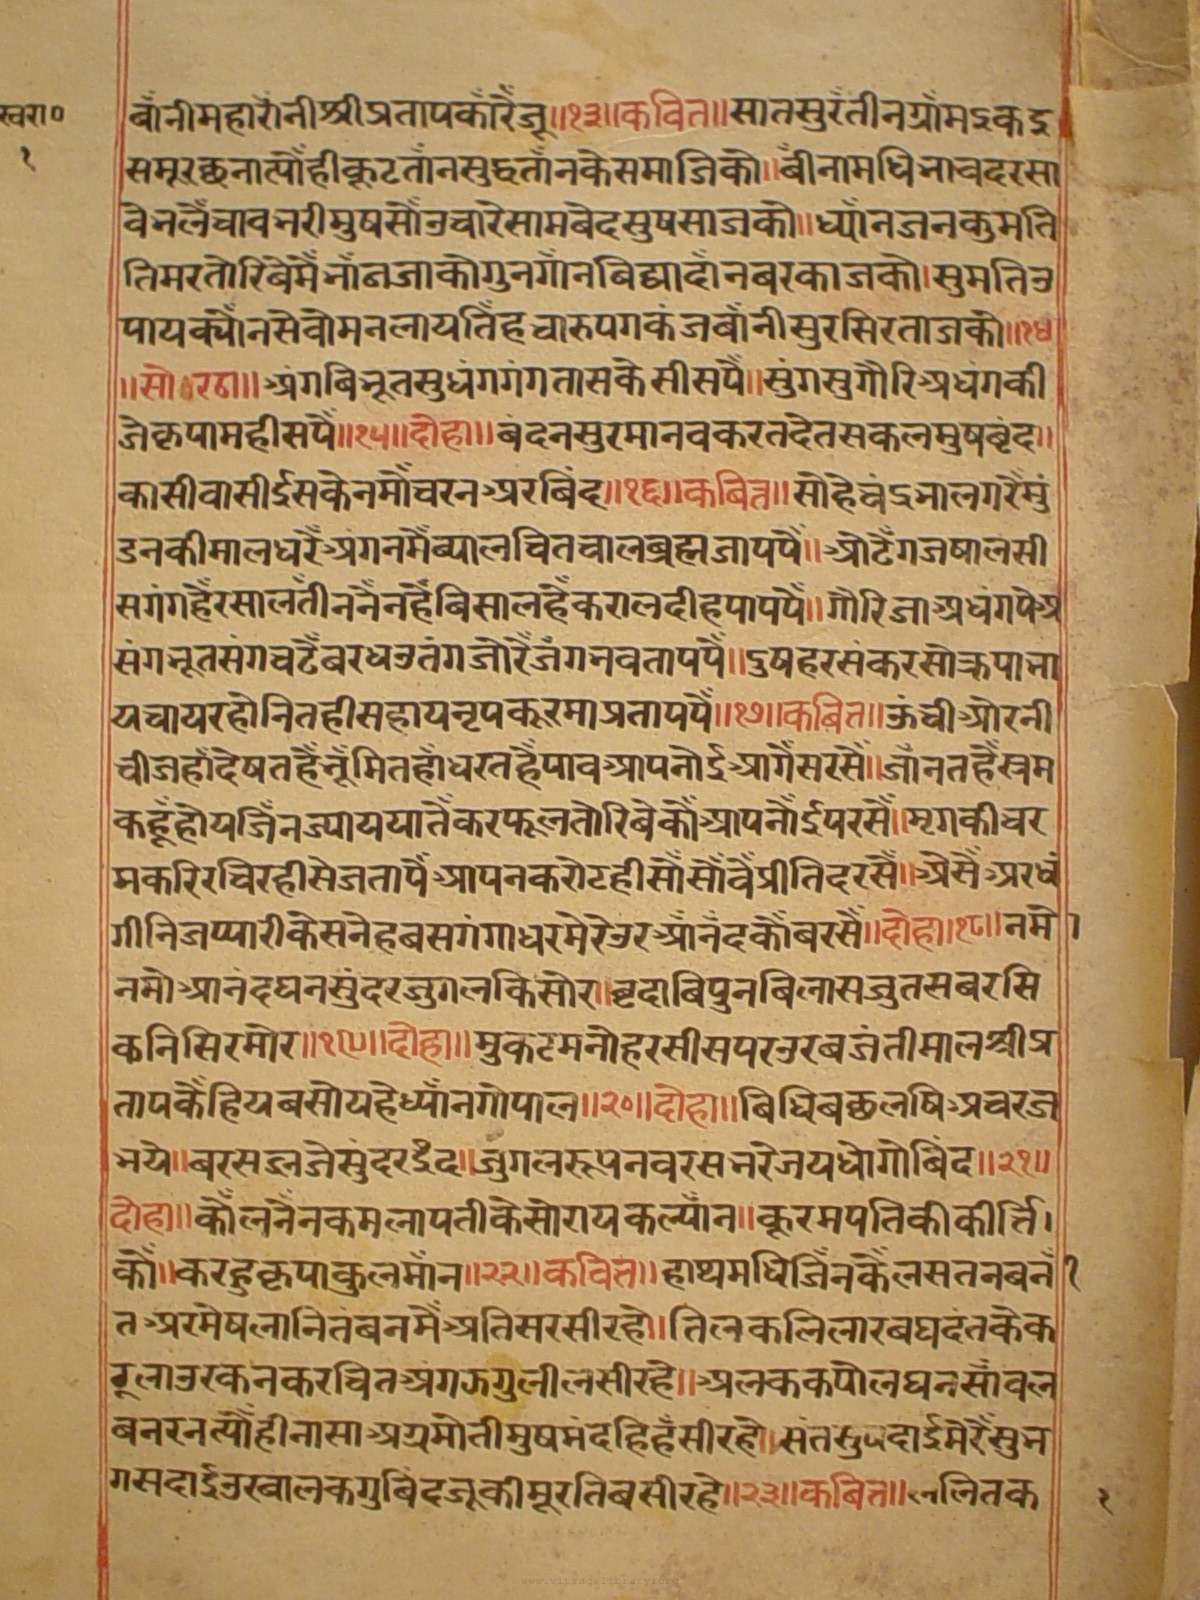 स्वरा०
१
बाँनीमहाराँनीश्रीप्रतापकाँरैजू॥१३॥कवित॥सातसुरँतीनग्राँमइकइ
समूरछनात्यौँहीकूटताँनसुद्धताँनकेसमाजिकौ॥बीँनामधिभावदरसा
वेनलैँचावनरीमुषसौँउचारेसामबेदसुषसाजकौ॥ध्याँनजनकुमति
तिमरतोरिबेमैँभाँनजाकौगुनगाँनबिद्यादाँनबरकाजकौ।सुमतिउ
पायक्यौँनसेवोमनलायतिँहचारुपगकंजबाँनीसुरसिरताजकौ॥१४
॥सोरठा॥अंगबिभूतसुधंगगंगतासकेसीसपैँ॥सुंगसुगौरिअधंगकी
जेकृपामहीसपैँ॥१५॥दोहा॥बंदनसुरमानवकरतदेतसकलमुषबृंद॥
कासीवासीईसकेनमौँचरनअरबिंद॥१६॥कबित॥सोहेचंदभालगरैँमुं
डनकीमालधरैँअंगनमैँब्यालचितचालब्रह्मजापपैँ॥ओटैँगजषालसी
सगंगहैँरसालतीँननैँनहैँबिसालहैँकरालदीहपापपैँ॥गौरिजाअधंगपेअ
संगभूतसंगचटैँबरधउतंगजोरैँजंगभवतापपैँ॥दुषहरसंकरसोकृपाभा
यचायरहौनितहीसहायनृपकूरमाप्रतापपैँ॥१७॥कबित॥ऊंचीओरनी
चीजहाँदेषतहैँभूँमितहाँधरतहैँपावआपनोईआगैँसरसैँ॥जाँनतहैँस्रम
कहूँहोयजिँनज्याययातैँकरफूलतोरिबेकौँआपनौँईपरसैँ॥मृगकीचर
मकरिरचिरहीसेजतापैँआपनकरोटहीसौँसोँवैँप्रीतिदरसैँ॥ऐसैँअरधं
गीनिजप्यारीकेसनेहबसगंगाधरमेरेउरआँनँदकौँबरसैँ॥दोहा॥१८॥नमो
नमोआनंदघनसुंदरजुगलकिसोर॥बृदाबिपुनबिलासजुतसबरसि
कनिसिरमौर॥१९॥दोहा॥मुकटमनोहरसीसपरउरबजंतीमालश्रीप्र
तापकैँहियबसोयहेध्याँनगोपाल॥२०॥दोहा॥बिधिबछलषिअचरज
भये॥बरसव्रजजेसुंदरइँद॥जुगलरूपनवरसभरेजयधोगोबिंद॥२१॥
दोहा॥कौँलनैँनकमलापतीकेसोरायकल्याँन॥कूरमपतिकीकीर्त्ति।
कौँ॥करहुकृपाकुलमाँन॥२२॥कवित॥हाथमधिजिँनकैँलसतनबनी
तअरमेषलानितंबनमैँअतिसरसीरहो॥तिलकलिलारबघदंतकेक
रूलाउरकनकरचितअंगऊगुलीलसीरहे॥अलककपोलघनसाँवल
बनरनत्यौँहीनासाअग्रमोतीमुषमंदहिहँसीरहौ॥संतसुषदाईमेरैँसुभ
गसदाईउरबालकगुबिंदजूकीमूरतिबसीरहे॥२३॥कबित॥ललितक
१